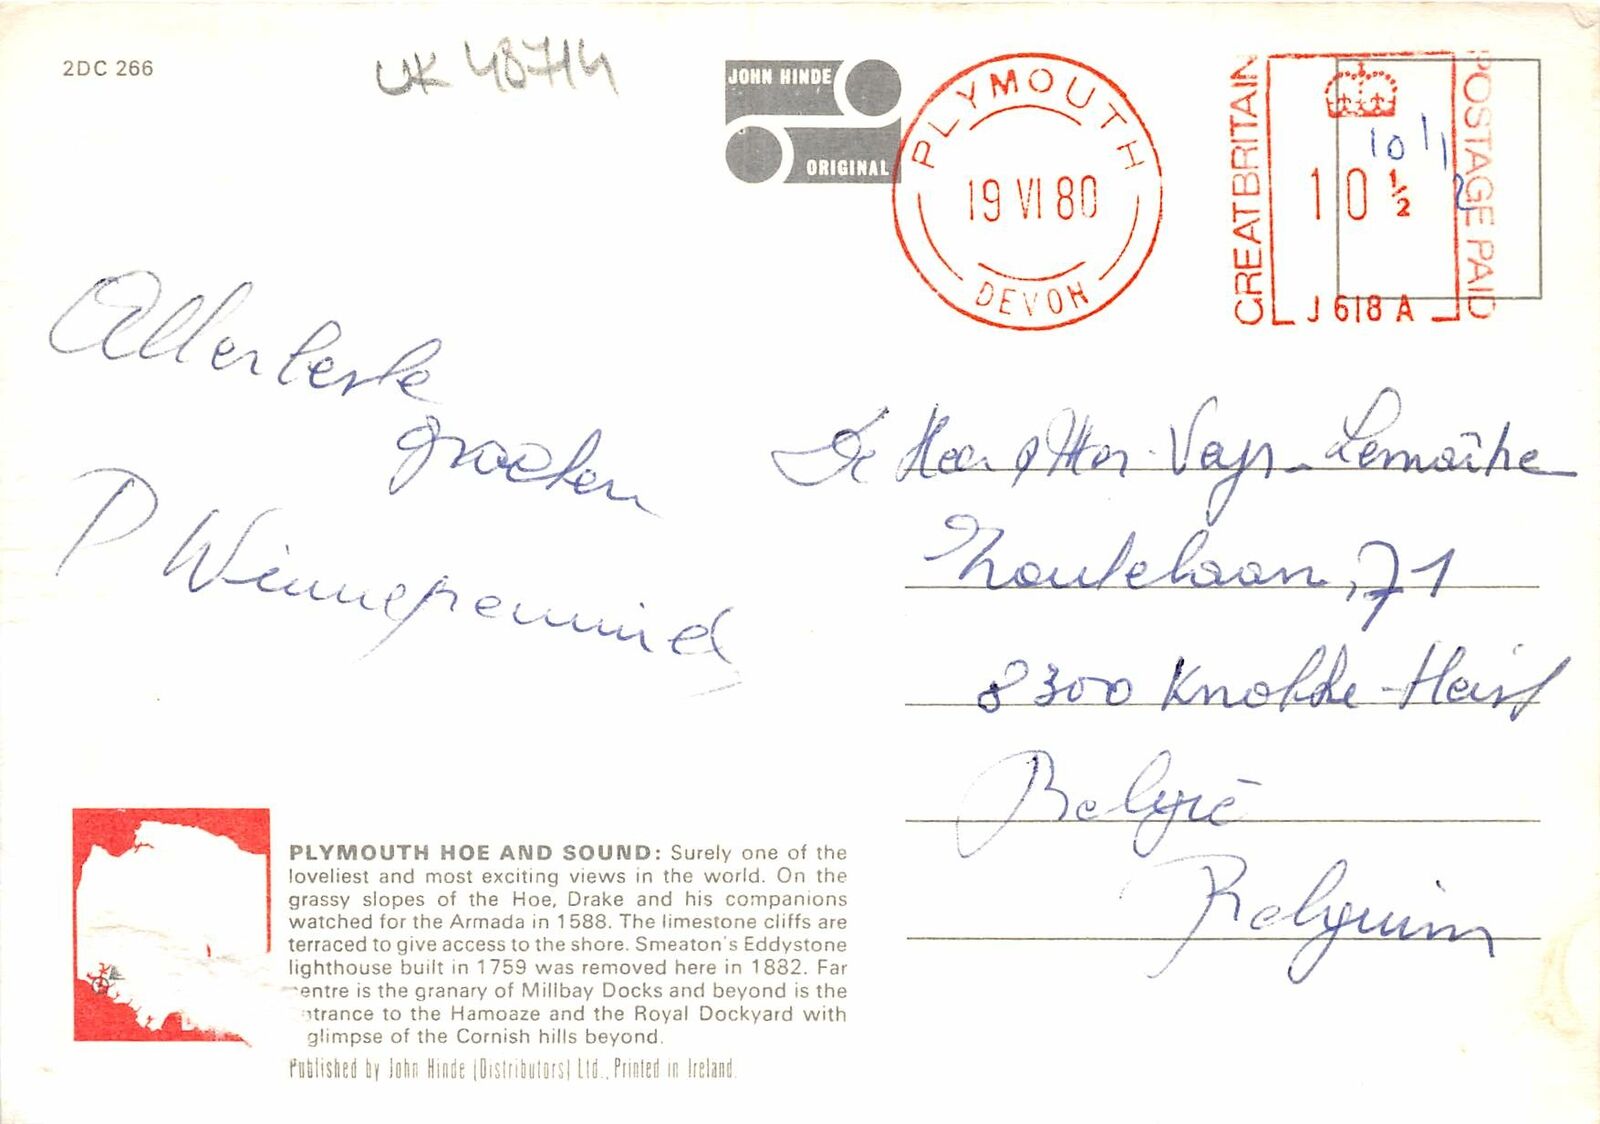 2DC 266
UK 48714
JOHN HINDE
ORIGINAL
PLYMOUTH
19 VI 80
DEVON
GREAT BRITAIN
10 1/2
10 ½
J618A
POSTAGE PAID
Allerbeste
groeten
P
De Heer & Mev. Lemaître
Zoutelaan, 71
8300 Knokke-Heist
België
Belgium
PLYMOUTH HOE AND SOUND: Surely one of the
loveliest and most exciting views in the world. On the
grassy slopes of the Hoe, Drake and his companions
watched for the Armada in 1588. The limestone cliffs are
terraced to give access to the shore. Smeaton's Eddystone
lighthouse built in 1759 was removed here in 1882. Far
entre is the granary of Millbay Docks and beyond is the
trance to the Hamoaze and the Royal Dockyard with
glimpse of the Cornish hills beyond.
Published by John Hinde (Distributors) Ltd., Printed in Ireland.